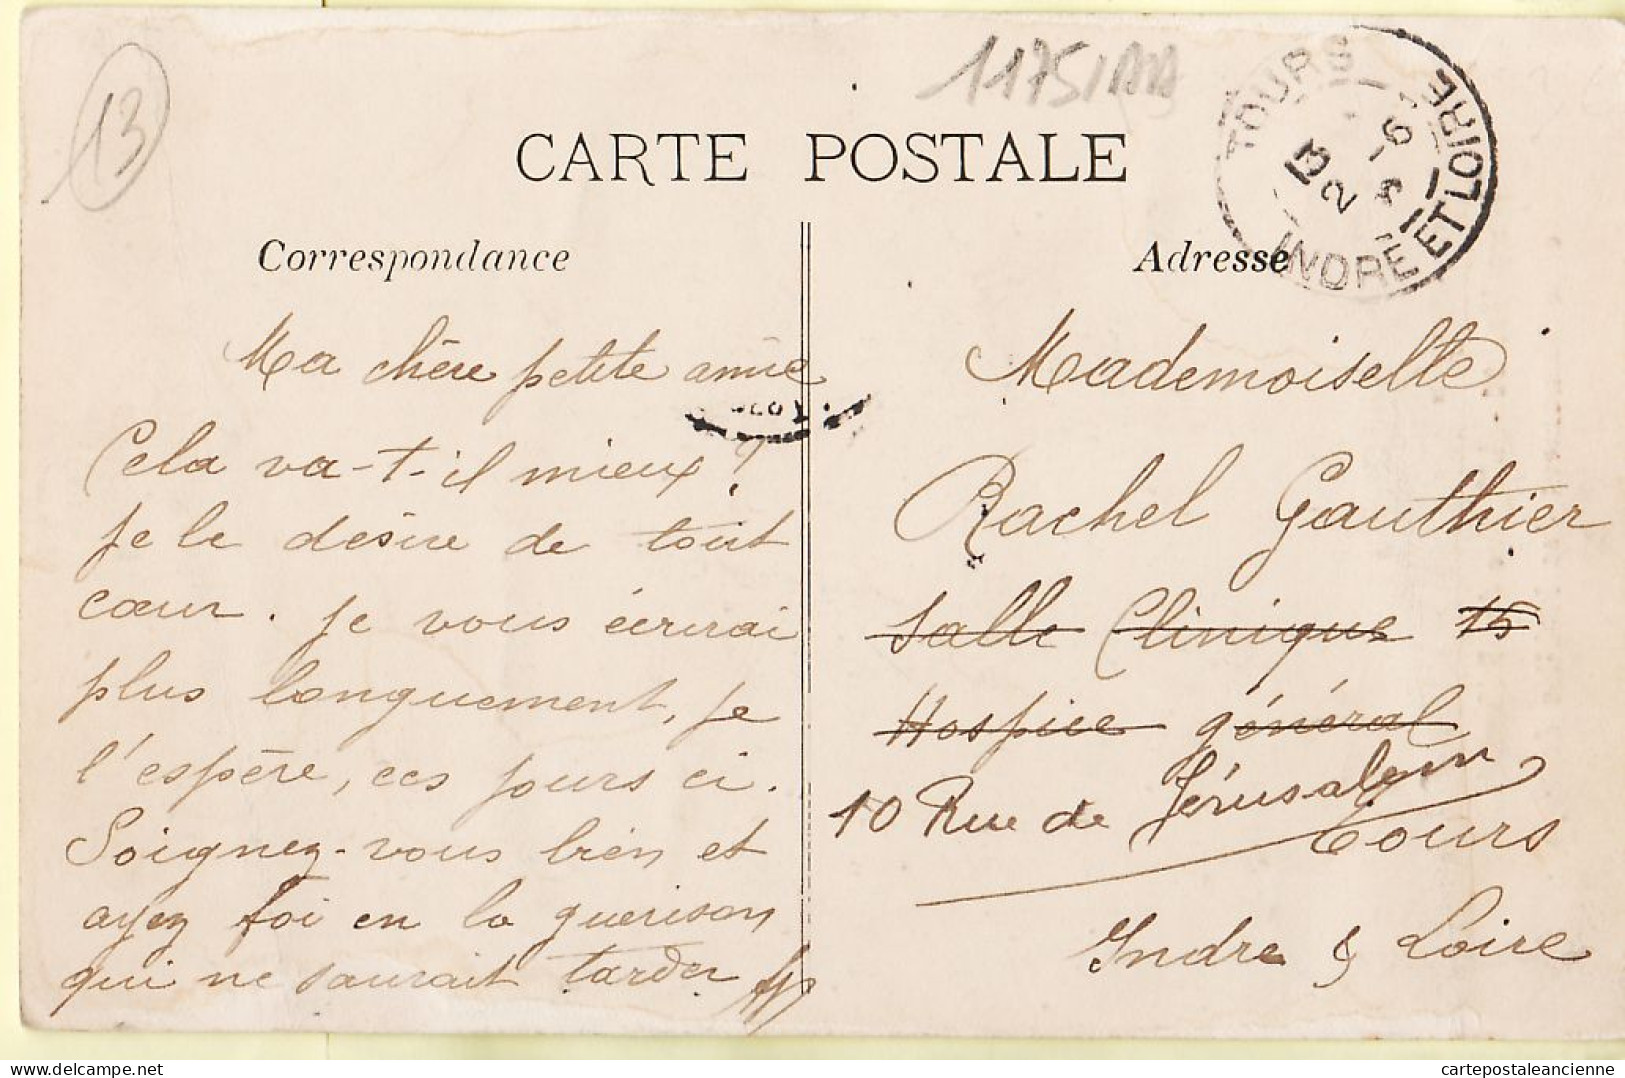 13
1175/AA
CARTE POSTALE
Correspondance
Ma chère petite amie
Cela va-t-il mieux?
Je le désire de tout
cœur. Je vous écrirai
plus longuement, je
l'espère, ces jours ci.
Soignez-vous bien et
ayez foi en la guérison
qui ne saurait tarder
TOURS
INDRE ET LOIRE
13
2
Adresse
Mademoiselle
Rachel Gauthier
Salle Clinique 15
Hospice général
10 Rue de Jérusalem
Tours
Indre & Loire
delcampe.net
cartepostaleancienne